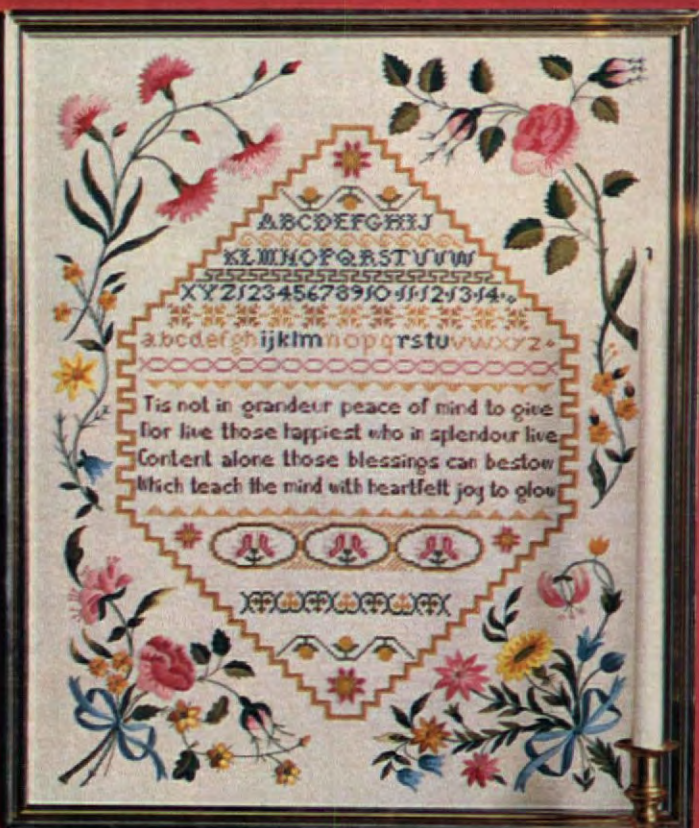 ABCDEFGHIJ
KLMNOPQRSTUVW
XYZ1234567891011121314
abcdefghijklmnopqrstuvwxyz
Tis not in grandeur peace of mind to give
Nor live those happiest who in splendour live
Content alone those blessings can bestow
Which teach the mind with heartfelt joy to glow